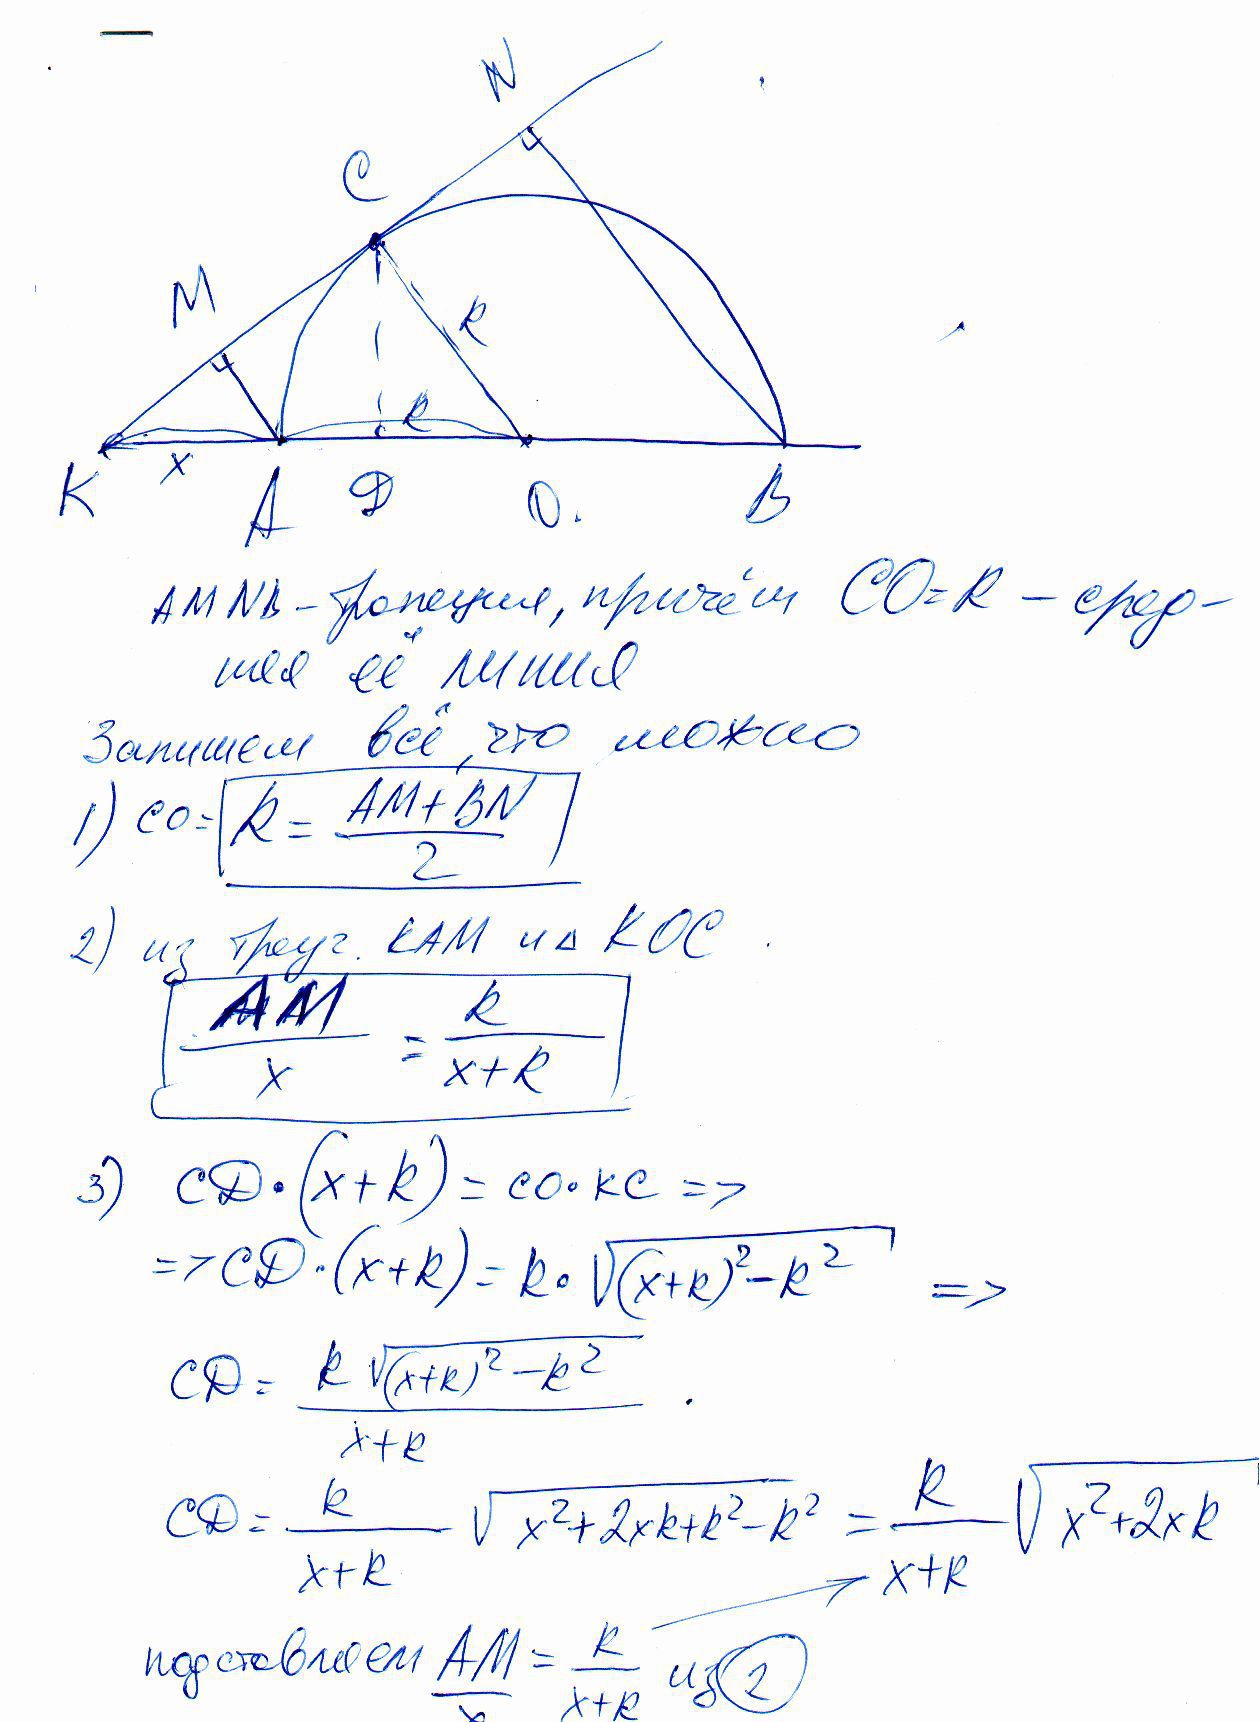 N
C
M
R
R
x
K A D O. B
AMNB – трапеция, причём CO=R – сред-
няя её линия
Запишем всё, что можно
1) CO= R = (AM+BN)/2
2) из треуг. KAM и Δ KOC.
AM/x = R/(x+R)
3) CD·(x+R) = CO·KC =>
=> CD·(x+R) = R·√((x+R)²–R²) =>
CD = R√((x+R)²–R²)/(x+R).
CD = R/(x+R) √(x²+2xR+R²–R²) = R/(x+R) √(x²+2xR)
подставляем AM/x = R/(x+R) из 2